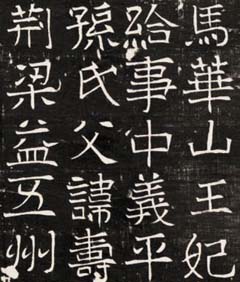 馬華山王妃
給事中義平
孫氏父諱壽
荆梁益五州